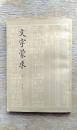 文字蒙求